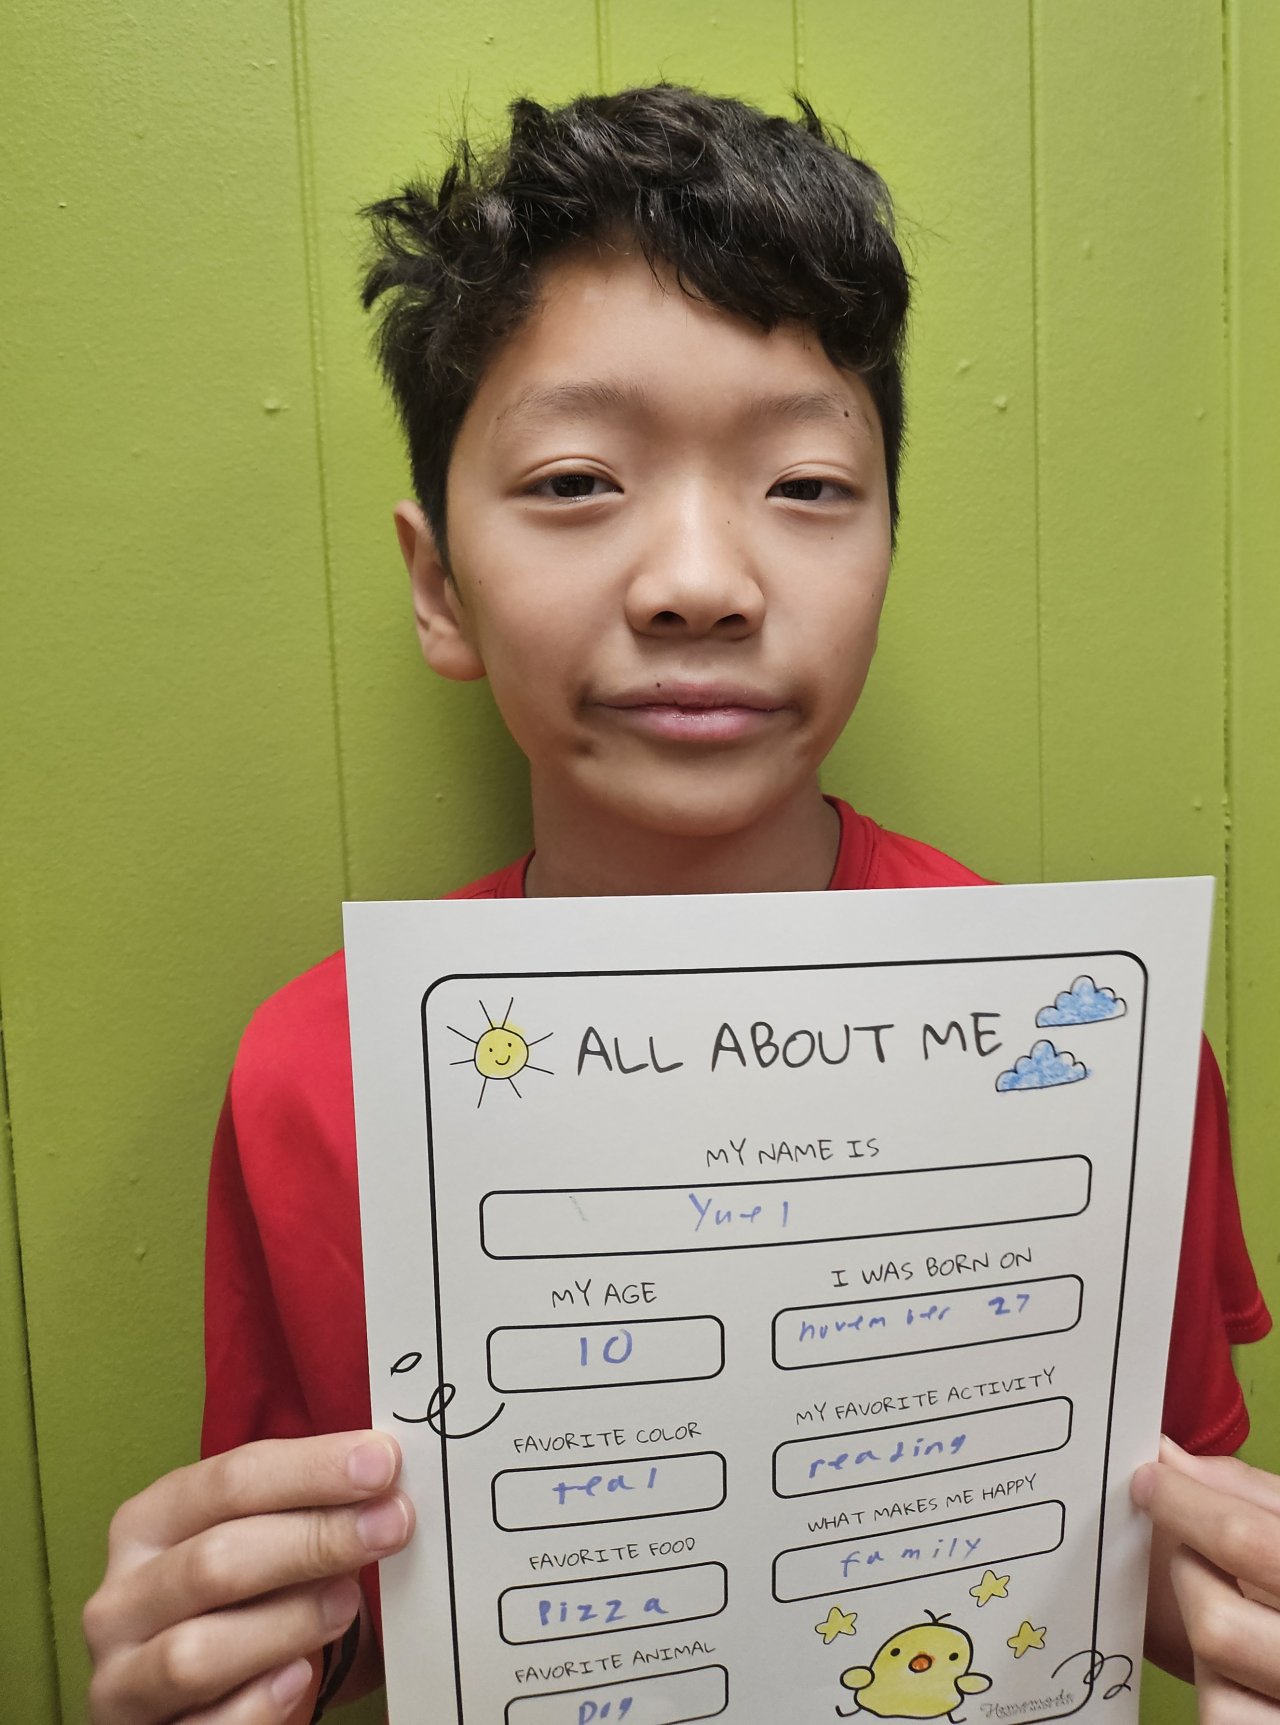 ALL ABOUT ME
MY NAME IS
Yuel
MY AGE
10
I WAS BORN ON
november 27
FAVORITE COLOR
teal
MY FAVORITE ACTIVITY
reading
FAVORITE FOOD
Pizza
WHAT MAKES ME HAPPY
family
FAVORITE ANIMAL
Dog
Homemade